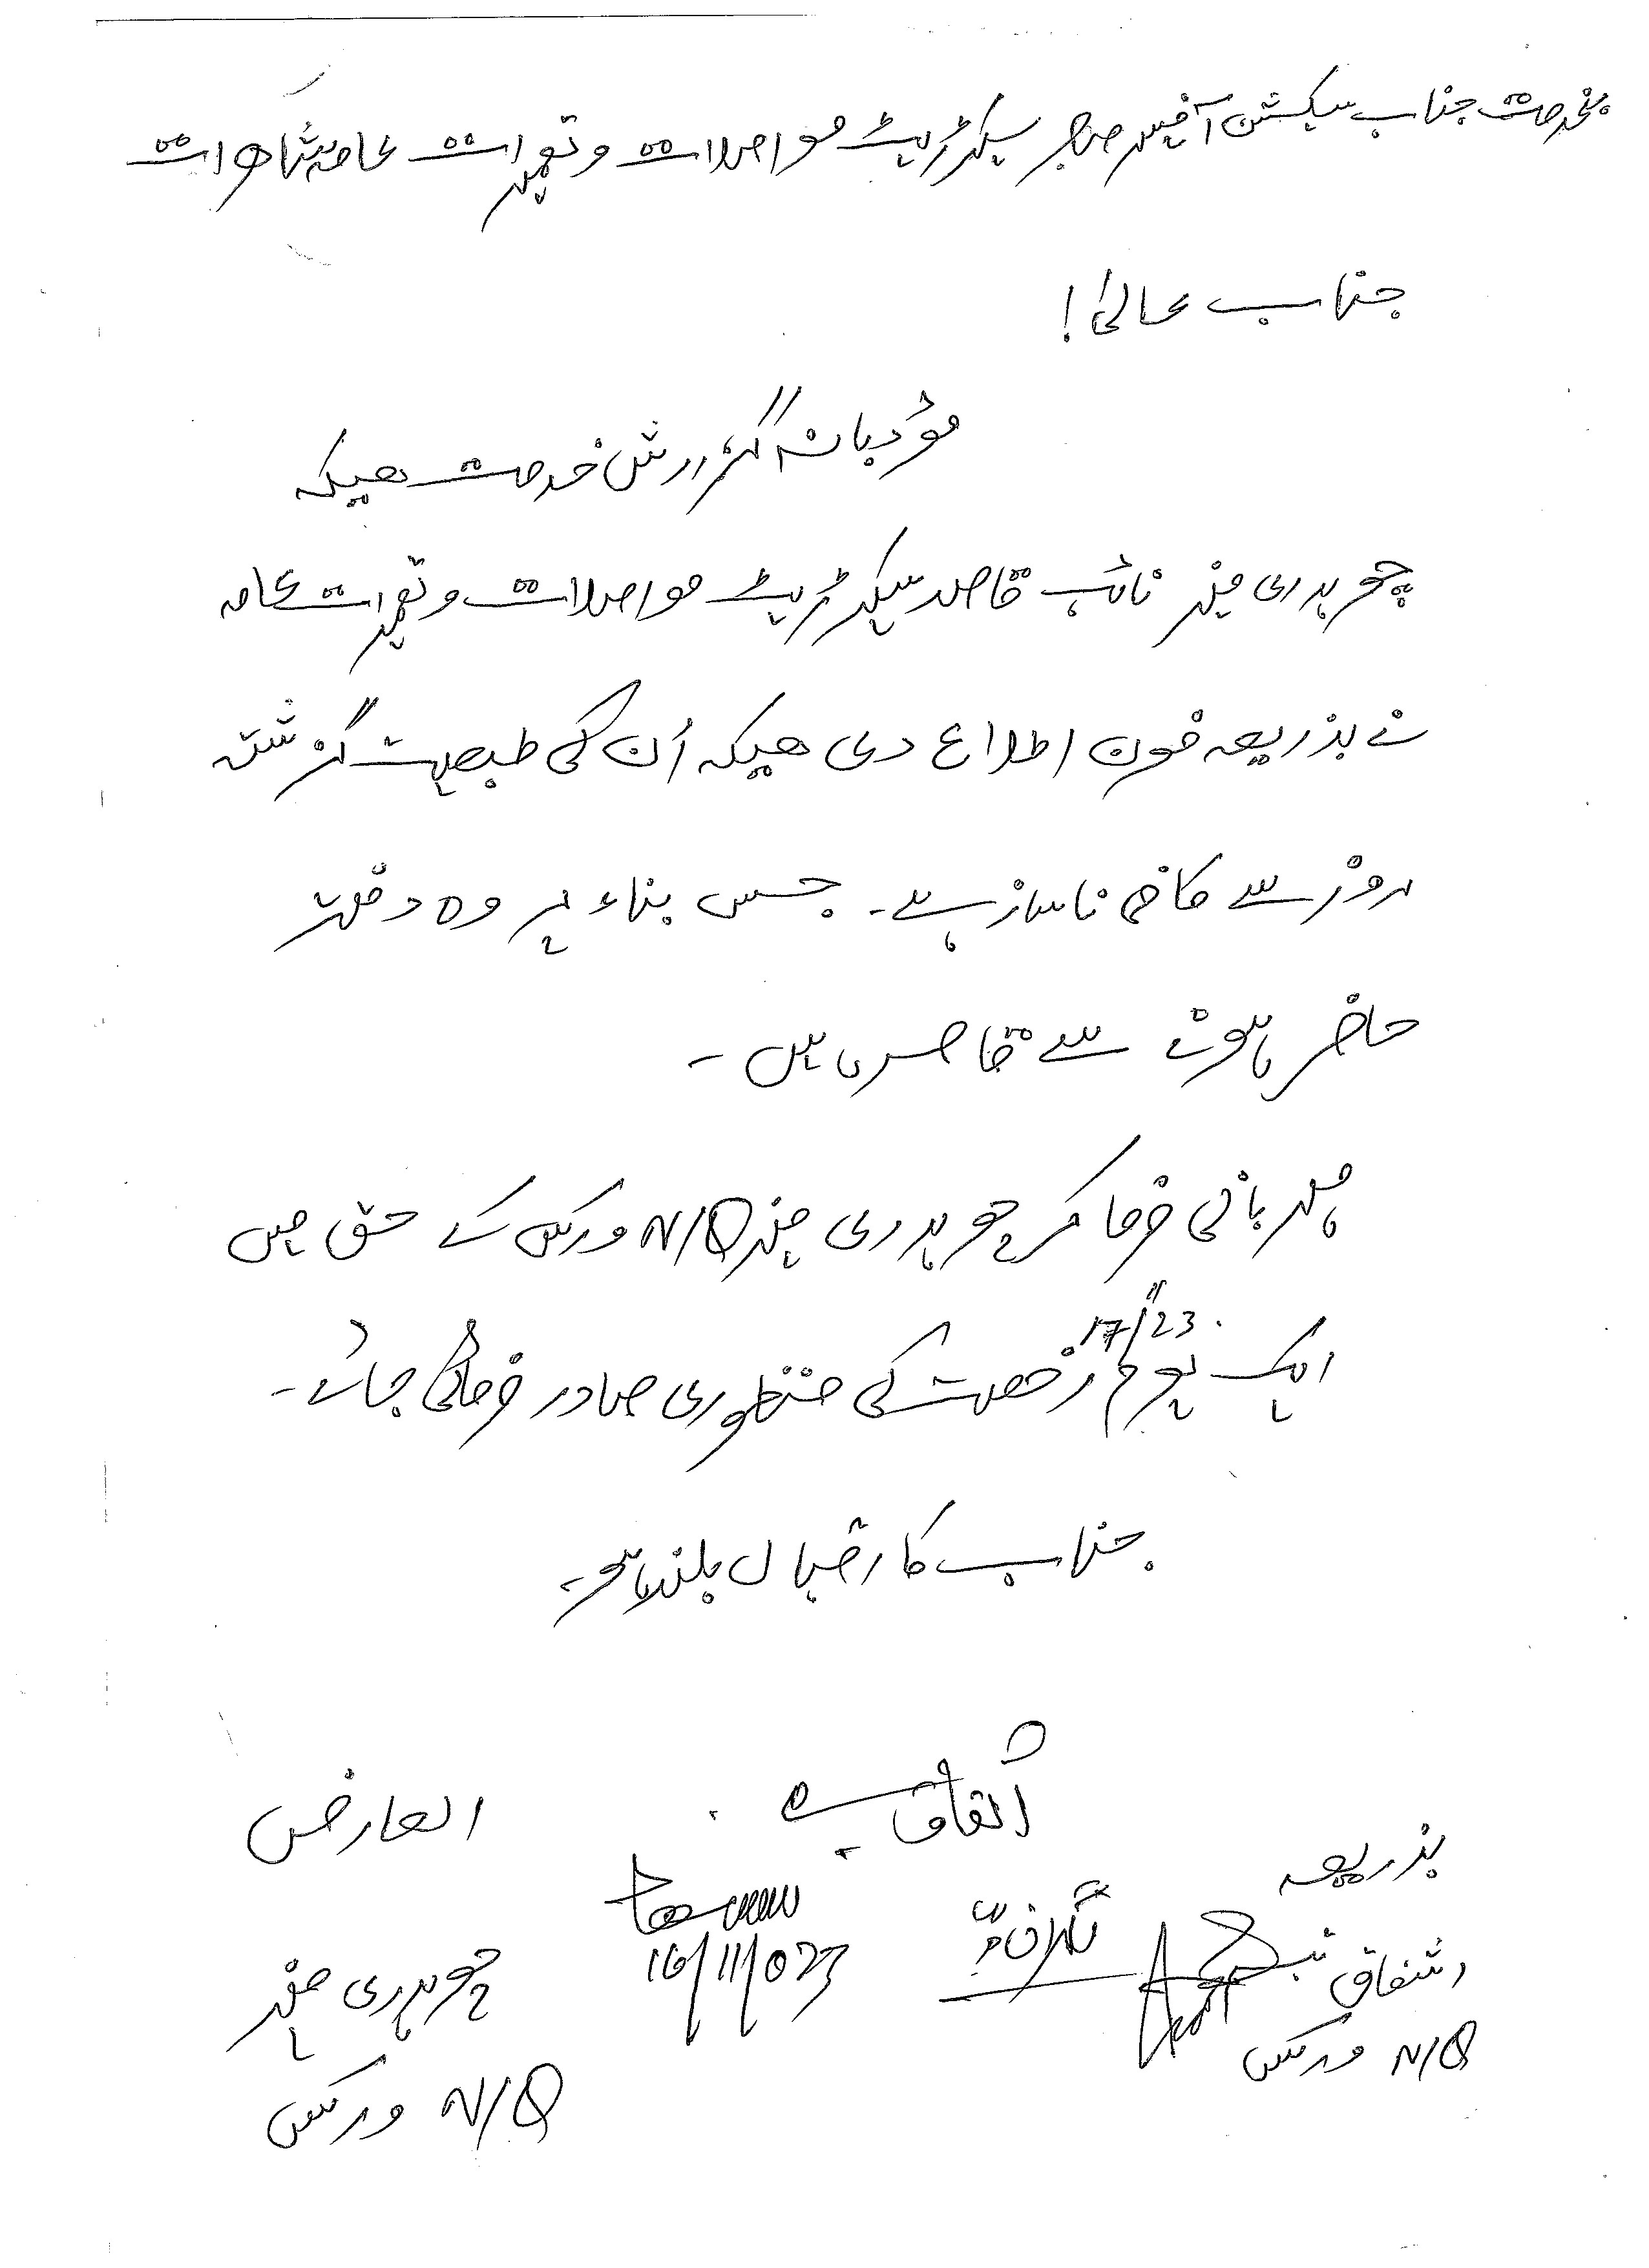 بخدمت جناب سیکشن آفیسر صاحب سیکرٹریٹ مواصلات و تعمیرات عامہ شاھرات
جناب عالیٰ!
مؤدبانہ گزارش خدمت ھیکہ
چوہدری منیر نائب قاصد سیکرٹریٹ مواصلات و تعمیرات عامہ
نے بذریعہ فون اطلاع دی ھیکہ اُن کی طبعیت گزشتہ
روز سے کافی ناساز ہے۔ جس بناء پر وہ دفتر
حاضر ہونے سے قاصر ہیں۔
مہربانی فرما کر چوہدری منیر N/Q ورکس کے حق میں
17/11/23
ایک یوم رخصت کی منظوری صادر فرمائی جائے۔
جناب کا اقبال بلند ہو۔
العارض
چوہدری منیر
N/Q ورکس
اتفاق ہے
16/11/023
بذریعہ
اشفاق
N/Q ورکس